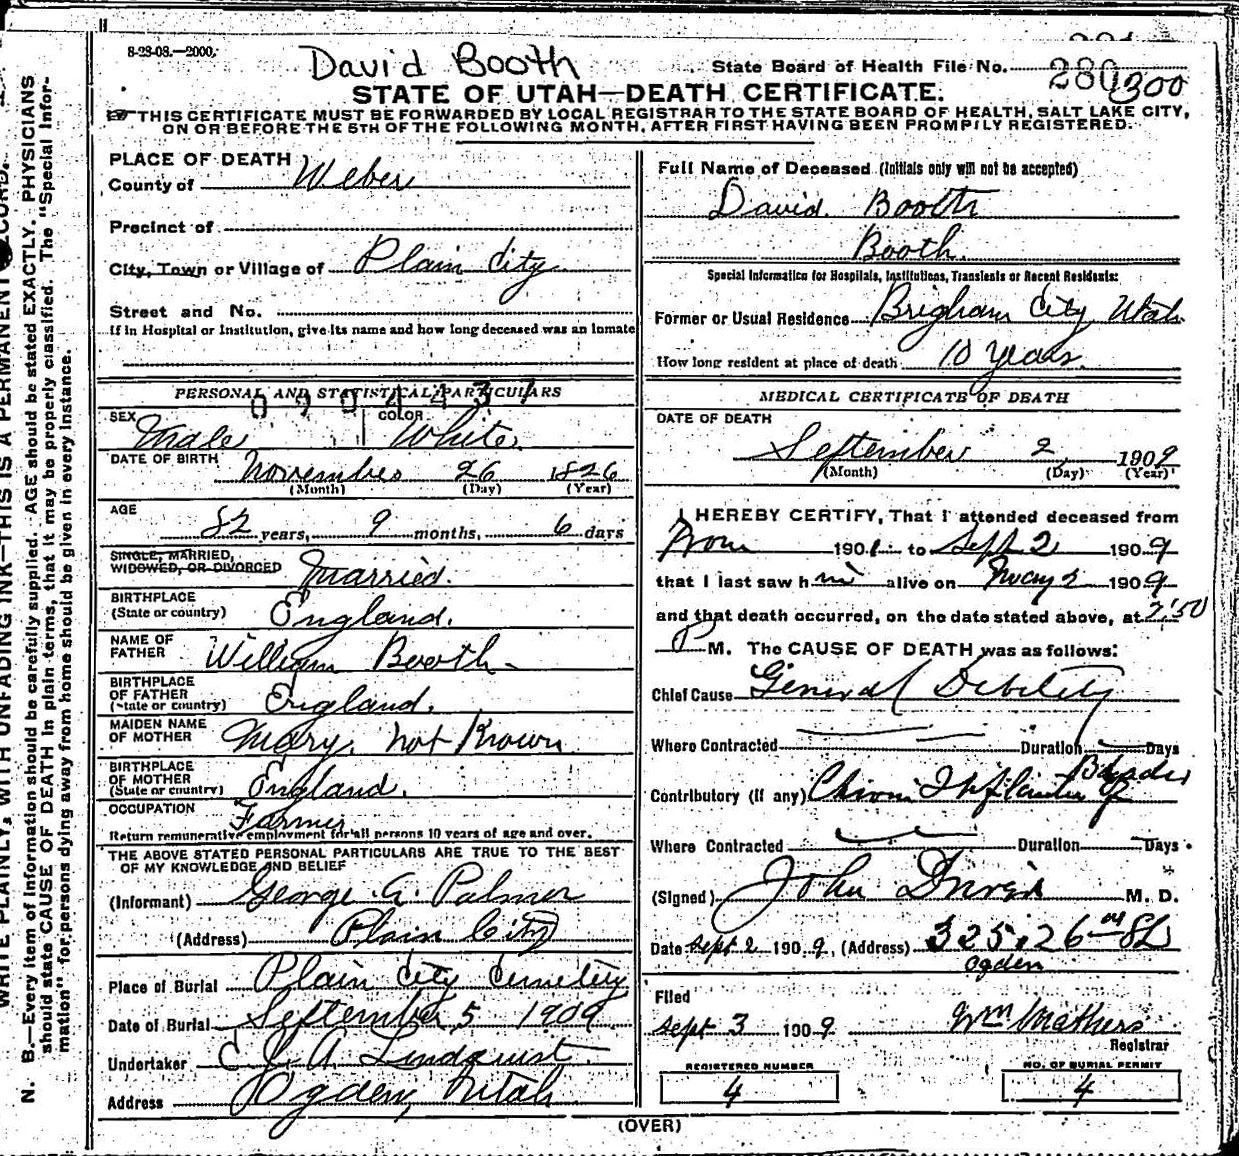 8-28-08.—2000.
David Booth
State Board of Health File No. 280 300
STATE OF UTAH—DEATH CERTIFICATE.
THIS CERTIFICATE MUST BE FORWARDED BY LOCAL REGISTRAR TO THE STATE BOARD OF HEALTH, SALT LAKE CITY,
ON OR BEFORE THE 5TH OF THE FOLLOWING MONTH, AFTER FIRST HAVING BEEN PROMPILY REGISTERED.
WRITE PLAINLY, WITH UNFADING INK—THIS IS A PERMANENT RECORD.
N. B.—Every item of information should be carefully supplied. AGE should be stated EXACTLY. PHYSICIANS
should state CAUSE OF DEATH in plain terms, that it may be properly classified. The "Special Infor-
mation" for persons dying away from home should be given in every instance.
PLACE OF DEATH
County of Weber
Precinct of
City, Town or Village of Plain City
Street and No.
If in Hospital or Institution, give its name and how long deceased was an inmate
PERSONAL AND STATISTICAL PARTICULARS
SEX Male COLOR White
DATE OF BIRTH November 26 1826
(Month) (Day) (Year)
AGE
82 years, 9 months, 6 days
SINGLE, MARRIED,
WIDOWED, OR DIVORCED Married.
BIRTHPLACE
(State or country) England.
NAME OF
FATHER William Booth
BIRTHPLACE
OF FATHER
(State or country) England.
MAIDEN NAME
OF MOTHER Mary, not Known
BIRTHPLACE
OF MOTHER
(State or country) England.
OCCUPATION
Farmer
Return remunerative employment for all persons 10 years of age and over.
THE ABOVE STATED PERSONAL PARTICULARS ARE TRUE TO THE BEST
OF MY KNOWLEDGE AND BELIEF
(Informant) George A. Palmer
(Address) Plain City
Place of Burial Plain City Cemetery
Date of Burial September 5 1909
Undertaker C. J. A. Lindquist
Address Ogden, Utah
Full Name of Deceased (Initials only will not be accepted)
David. Booth
Booth.
Special Information for Hospitals, Institutions, Transients or Recent Residents:
Former or Usual Residence Brigham City Utah
How long resident at place of death 10 years.
MEDICAL CERTIFICATE OF DEATH
DATE OF DEATH
September 2 1909
(Month) (Day) (Year)
I HEREBY CERTIFY, That I attended deceased from
From 1901 to Sept 2 1909
that I last saw him alive on 1909
and that death occurred, on the date stated above, at 2:50
P M. The CAUSE OF DEATH was as follows:
Chief Cause General Debility
Where Contracted Duration Days
Bladder
Contributory (If any) of
Where Contracted Duration Days
(Signed) John M. D.
Date Sept 2 1909, (Address) 325.26
Ogden
Filed
Sept 3 1909 Wm
Registrar
REGISTERED NUMBER
4
NO. OF BURIAL PERMIT
4
(OVER)